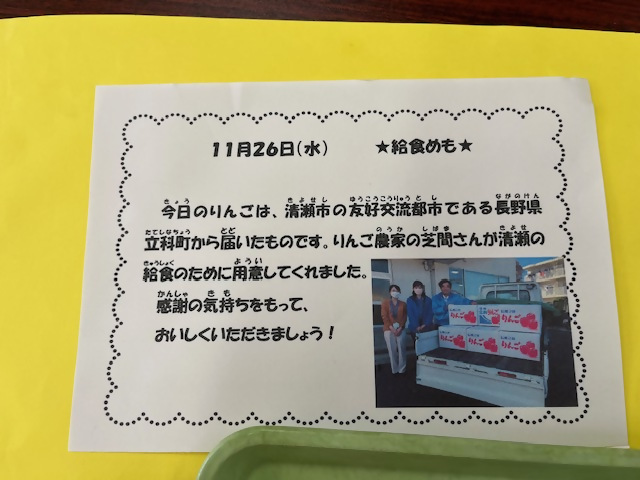 11月26日(水) ★給食めも★
今日のりんごは、清瀬市の友好交流都市である長野県
立科町から届いたものです。りんご農家の芝間さんが清瀬の
給食のために用意してくれました。
感謝の気持ちをもって、
おいしくいただきましょう！
りんご
りんご
りんご
りんご